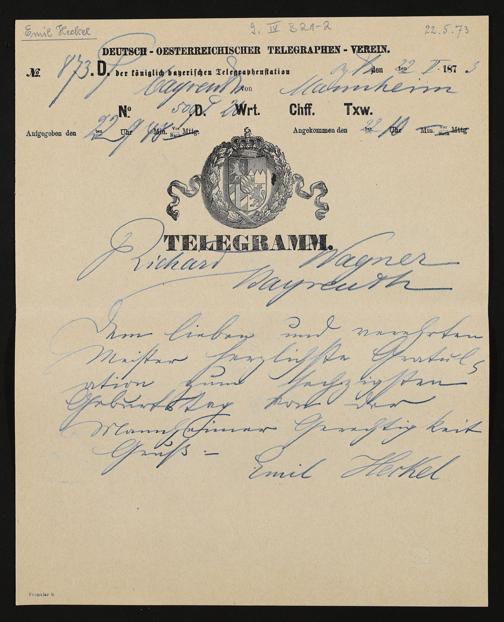 Emil Heckel
9. IV B21-2
22.5.73
DEUTSCH - OESTERREICHISCHER TELEGRAPHEN - VEREIN.
№ 873. D. der königlich bayerischen Telegraphenstation
Bayreuth von Mannheim
den 22 ten V. 1873
No 509 D. 20 Wrt. Chff. Txw.
Aufgegeben den 22 ten 9 Uhr Min. Vor Nach Mttg.
Angekommen den 22 ten 10 Uhr Min. Vor Nach Mttg
TELEGRAMM.
Richard Wagner
Bayreuth
Dem lieben und verehrten
Meister herzlichste Gratul-
ation zum sechzigsten
Geburtstag von der
Mannheimer Gerechtigkeit
Gruß =
Emil Heckel
Formular b.